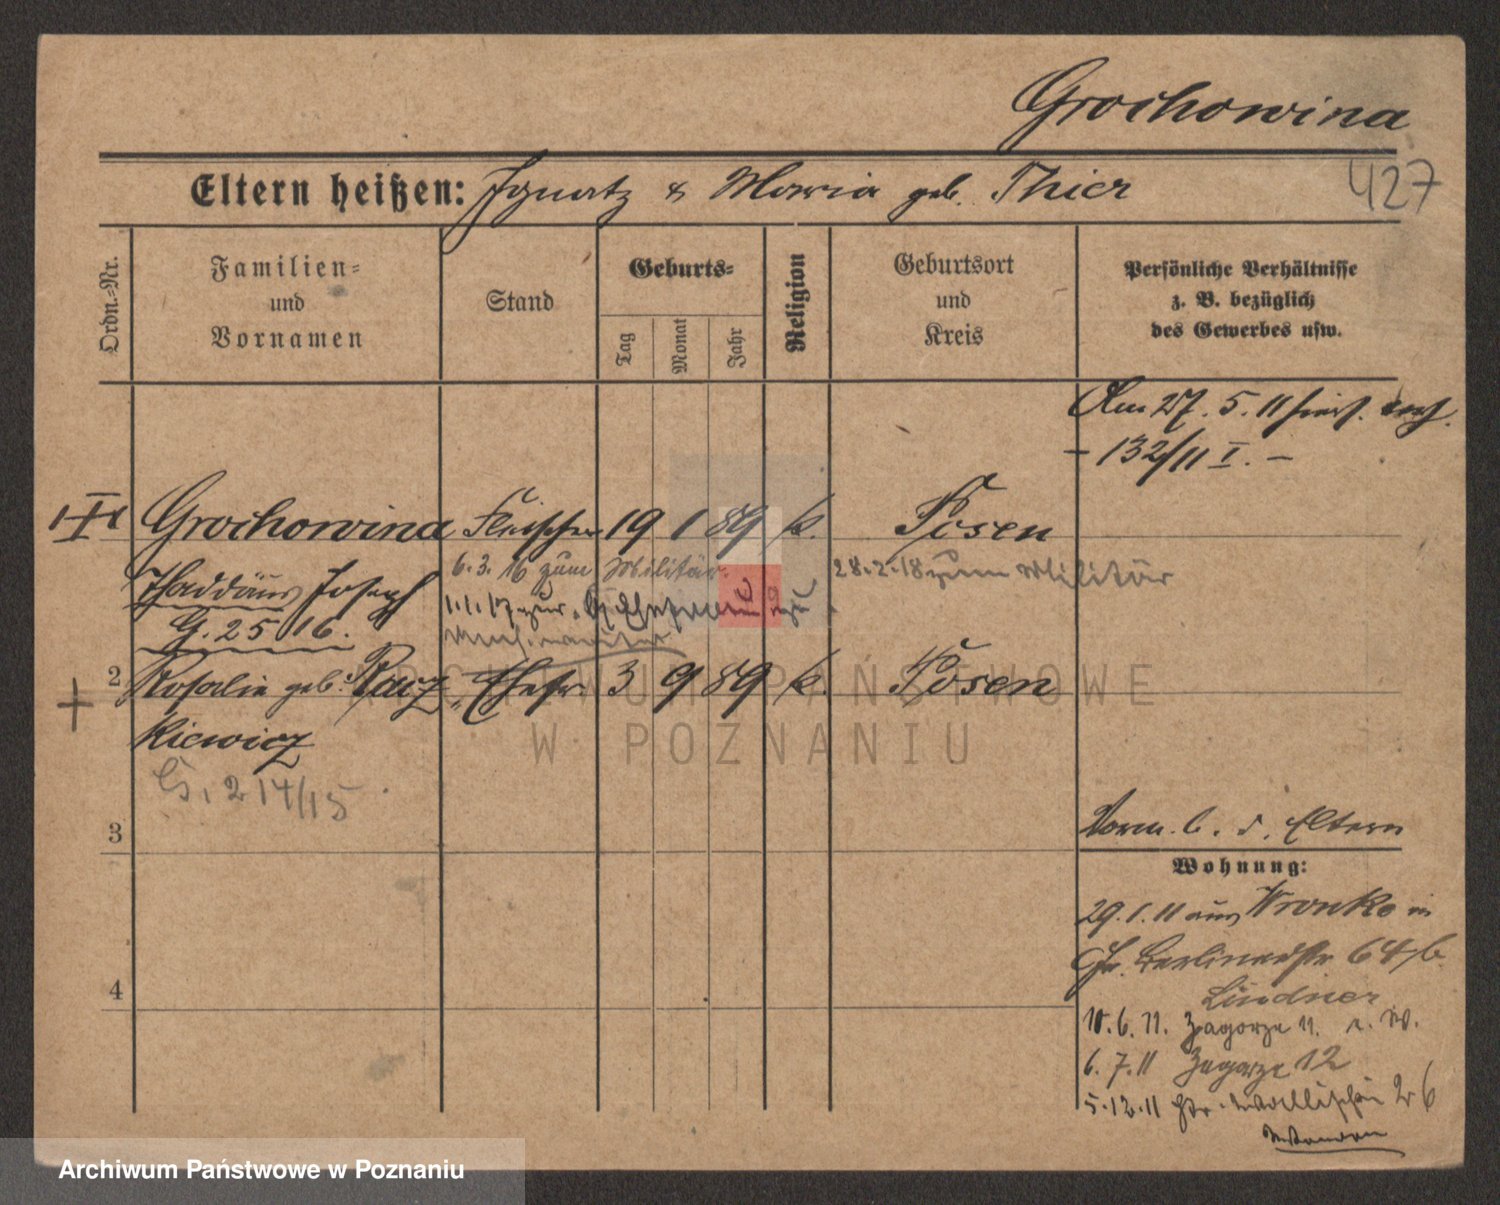 Grochowina
427
Eltern heißen: Ignatz & Maria geb. Thier
Ordn.-Nr.
Familien-
und
Vornamen
Stand
Geburts-
Tag
Monat
Jahr
Religion
Geburtsort
und
Kreis
Persönliche Verhältnisse
z. B. bezüglich
des Gewerbes usw.
Am 27. 5. 11
- 132/11 I. -
1 Grochowina Fleischer 19 1 89 k. Posen
6. 3. 16 zum Militär. 28.2.18 zum Militär
Thaddäus Joseph
1.1.17 zur
G. 25 16.
2 Rosalie geb. Racz- Ehefr. 3 9 89 k. Posen
kiewicz
G, 214/15
3
Vorm. b. d. Eltern
Wohnung:
29.1.11 aus Wronke in
Berlinerstr 64 b
Lindner
4
10.6.11. Zagorze 11.
6.7.11 Zagorze 12
5.12.11 Gr. Wallischei 2 b
ARCHIWUM PAŃSTWOWE
W POZNANIU
Archiwum Państwowe w Poznaniu